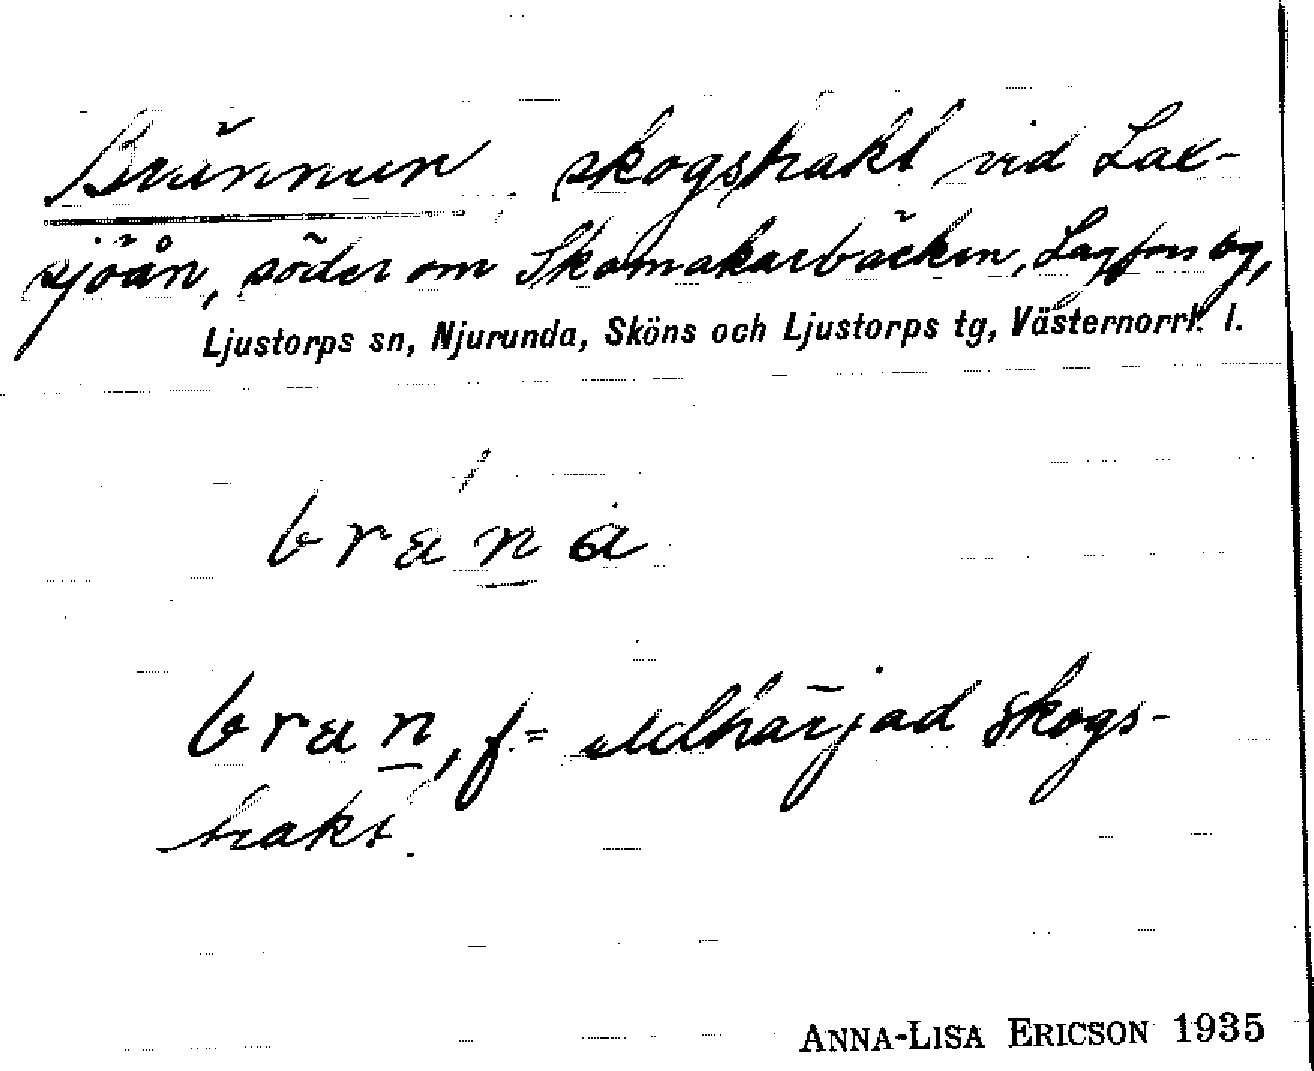 Brännnen, skogstrakt vid Lax-
sjöån, söder om Skomakarbäcken, Lagfors by,
Ljustorps sn, Njurunda, Sköns och Ljustorps tg, Västernorrl. l.
bræn̲a
bræn̲, f.= eldhärjad skogs-
trakt.
ANNA-LISA ERICSON 1935